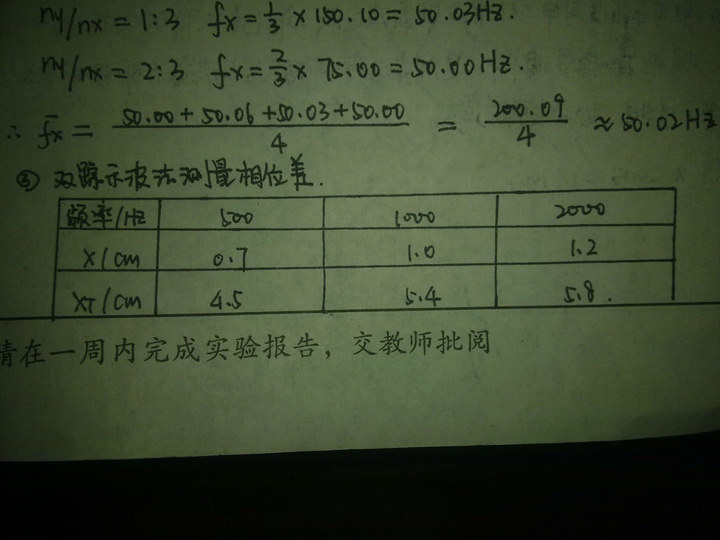 ny/nx = 1:3 fx = 1/3 × 150.10 = 50.03Hz.
ny/nx = 2:3 fx = 2/3 × 75.00 = 50.00Hz.
∴ f̄x = (50.00 + 50.06 + 50.03 + 50.00)/4 = 200.09/4 ≈ 50.02Hz
③ 双踪示波法测量相位差.
频率/Hz 500 1000 2000
X/cm 0.7 1.0 1.2
XT/cm 4.5 5.4 5.8.
请在一周内完成实验报告，交教师批阅